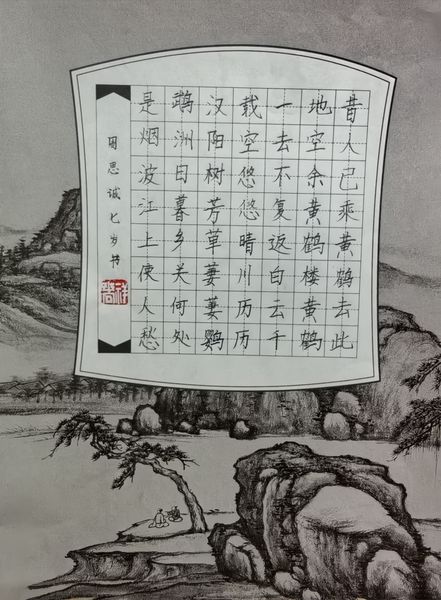 昔人已乘黄鹤去此
地空余黄鹤楼黄鹤
一去不复返白云千
载空悠悠晴川历历
汉阳树芳草萋萋鹦
鹉洲日暮乡关何处
是烟波江上使人愁
周思诚七岁书